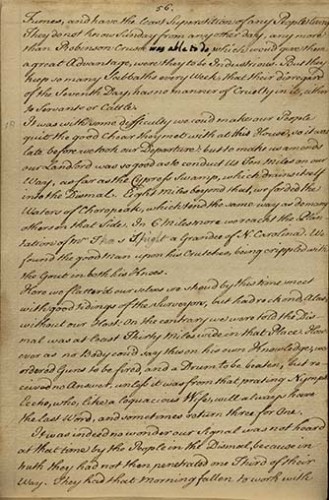 56.
Times, and have the least Superstition of any People living.
They do not know Sunday from any other day, any more
than Robinson Crusoe was able to do, which would give them
a great Advantage, were they to be Industrious. But they
keep so many Sabbaths every Week, that their disregard
of the Seventh Day, has no manner of Cruelty in it, either
to Servants or Cattle.
It was with some difficulty we could make our People
quit the good Chear they met with at this House, so it was
late before we took our Departure; but to make us amends
our Landlord was so good as to conduct us Ten Miles on our
Way, as far as the Cypress Swamp, which drains itself
into the Dismal. Eight Miles beyond that, we forded the
Waters of Coropeak, which tend the same way as do many
others on that Side. In 6 Miles more we reacht the Plan-
tation of Mr Thos Spight a Grandee of N. Carolina. We
found the good man upon his Crutches, being crippled with
the Gout in both his Knees.
Here we flatter'd our selves we shou'd by this time meet
with good Tidings of the Surveyors, but had reckon'd, alas
without our Host: On the contrary we were told the Dis-
mal was at least Thirty Miles wide in that Place. How-
ever as no Body could say this on his own Knowledge, we
ordered Guns to be fired, and a Drum to be beaten, but re-
ceived no Answer, unless it was from that prating Nymph
Eccho, who, like a loquacious Wife, will always have
the last Word, and sometimes return three for One.
It was indeed no wonder our Signal was not heard
at that time by the People in the Dismal, because in
truth they had not then penetrated one Third of their
Way. They had that morning fallen to work with